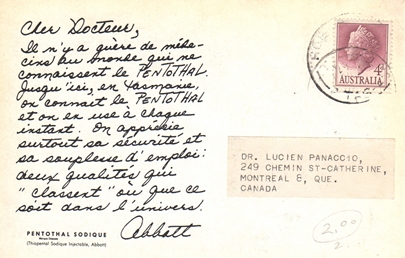 Cher Docteur,
Il n'y a guère de méde-
cins au monde qui ne
connaissent le PENTOTHAL.
Jusqu'ici, en Tasmanie,
on connait le PENTOTHAL
et on en use à chaque
instant. On apprécie
surtout sa sécurité et
sa souplesse d'emploi:
deux qualités qui
"classent" où que ce
soit dans l'univers.
Abbott
PENTOTHAL SODIQUE
(Thiopental Sodique Injectable, Abbott)
4D
AUSTRALIA
DR. LUCIEN PANACCIO,
249 CHEMIN ST-CATHERINE,
MONTREAL 8, QUE.
CANADA
2.00